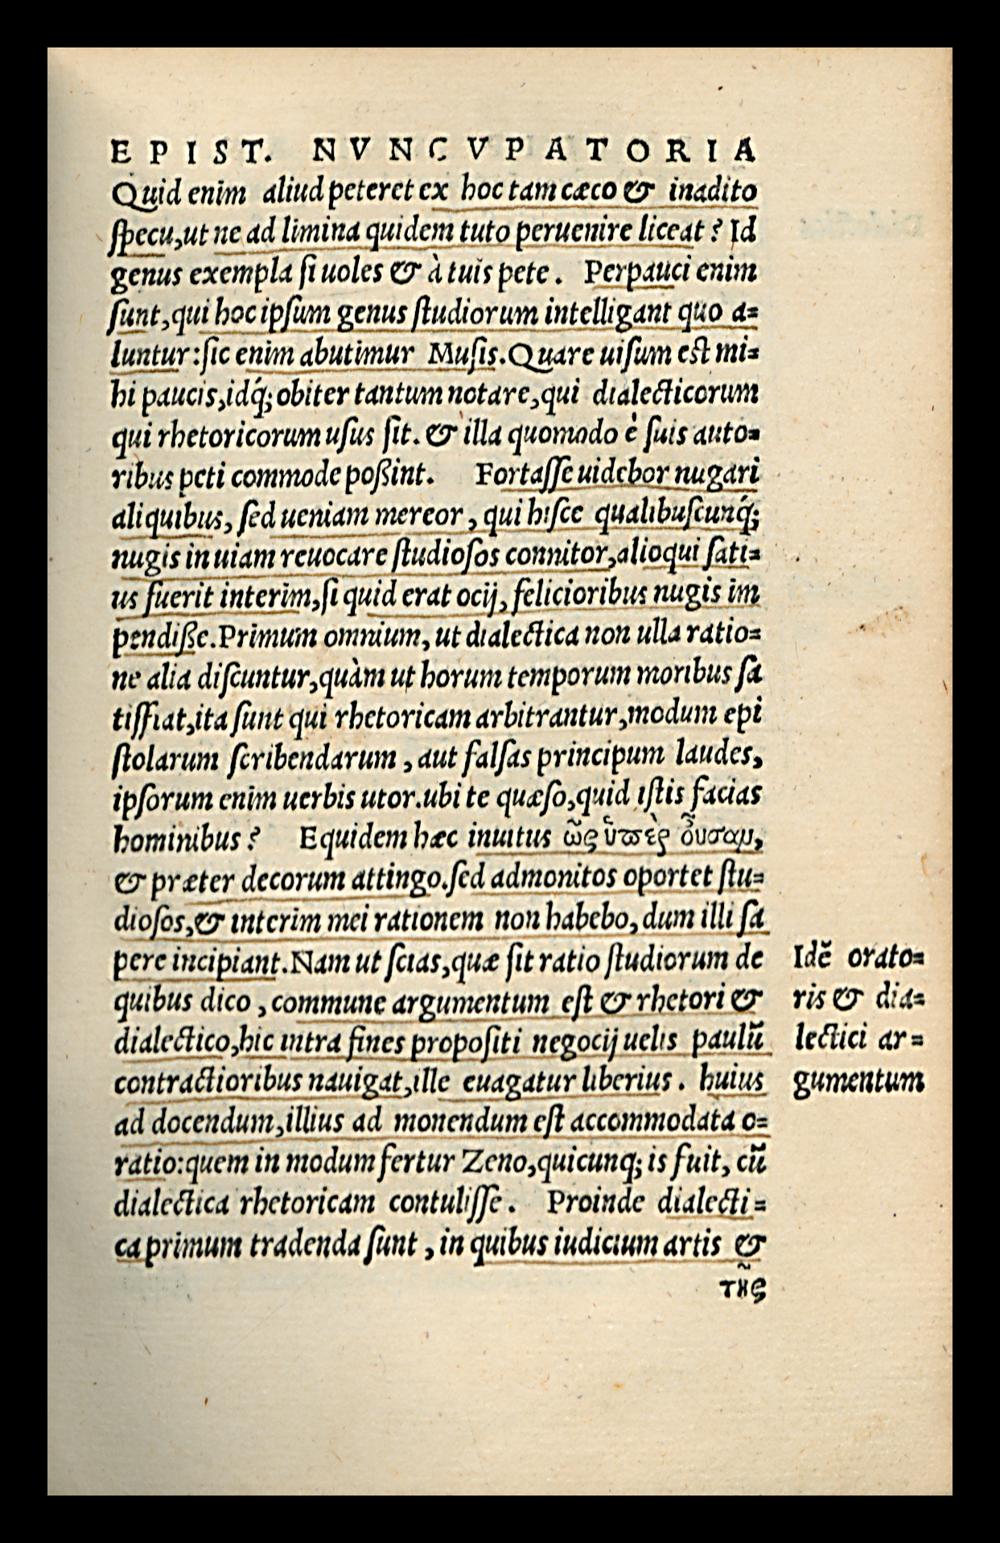 EPIST. NVNCVPATORIA
Quid enim aliud peteret ex hoc tam cæco & inadito
ſpecu,ut ne ad limina quidem tuto peruenire liceat? Id
genus exempla ſi uoles & à tuis pete. Perpauci enim
ſunt,qui hoc ipſum genus ſtudiorum intelligant quo a=
luntur:ſic enim abutimur Muſis.Quare uiſum eſt mi=
hi paucis,idq́; obiter tantum notare,qui dialecticorum
qui rhetoricorum uſus ſit. & illa quomodo è ſuis auto=
ribus peti commode poßint. Fortaſſe uidebor nugari
aliquibus, ſed ueniam mereor, qui hiſce qualibuſcunq́;
nugis in uiam reuocare ſtudioſos connitor,alioqui ſati=
us fuerit interim,ſi quid erat ocij, felicioribus nugis im
pendiße.Primum omnium, ut dialectica non ulla ratio=
ne alia diſcuntur,quàm ut horum temporum moribus ſa
tiſfiat,ita ſunt qui rhetoricam arbitrantur,modum epi
ſtolarum ſcribendarum, aut falſas principum laudes,
ipſorum enim uerbis utor.ubi te quæſo,quid iſtis facias
hominibus? Equidem hæc inuitus ὥς ὑπὲρ
& præter decorum attingo.ſed admonitos oportet ſtu=
dioſos,& interim mei rationem non habebo, dum illi ſa
pere incipiant.Nam ut ſcias,quæ ſit ratio ſtudiorum de
quibus dico, commune argumentum eſt & rhetori &
dialectico,hic intra fines propoſiti negocij uelis paulũ
contractioribus nauigat,ille euagatur liberius. huius
ad docendum,illius ad monendum eſt accommodata o=
ratio:quem in modum fertur Zeno,quicunq; is fuit, cũ
dialectica rhetoricam contuliſſe. Proinde dialecti=
ca primum tradenda ſunt, in quibus iudicium artis &
τῆς
Idẽ orato=
ris & dia=
lectici ar=
gumentum